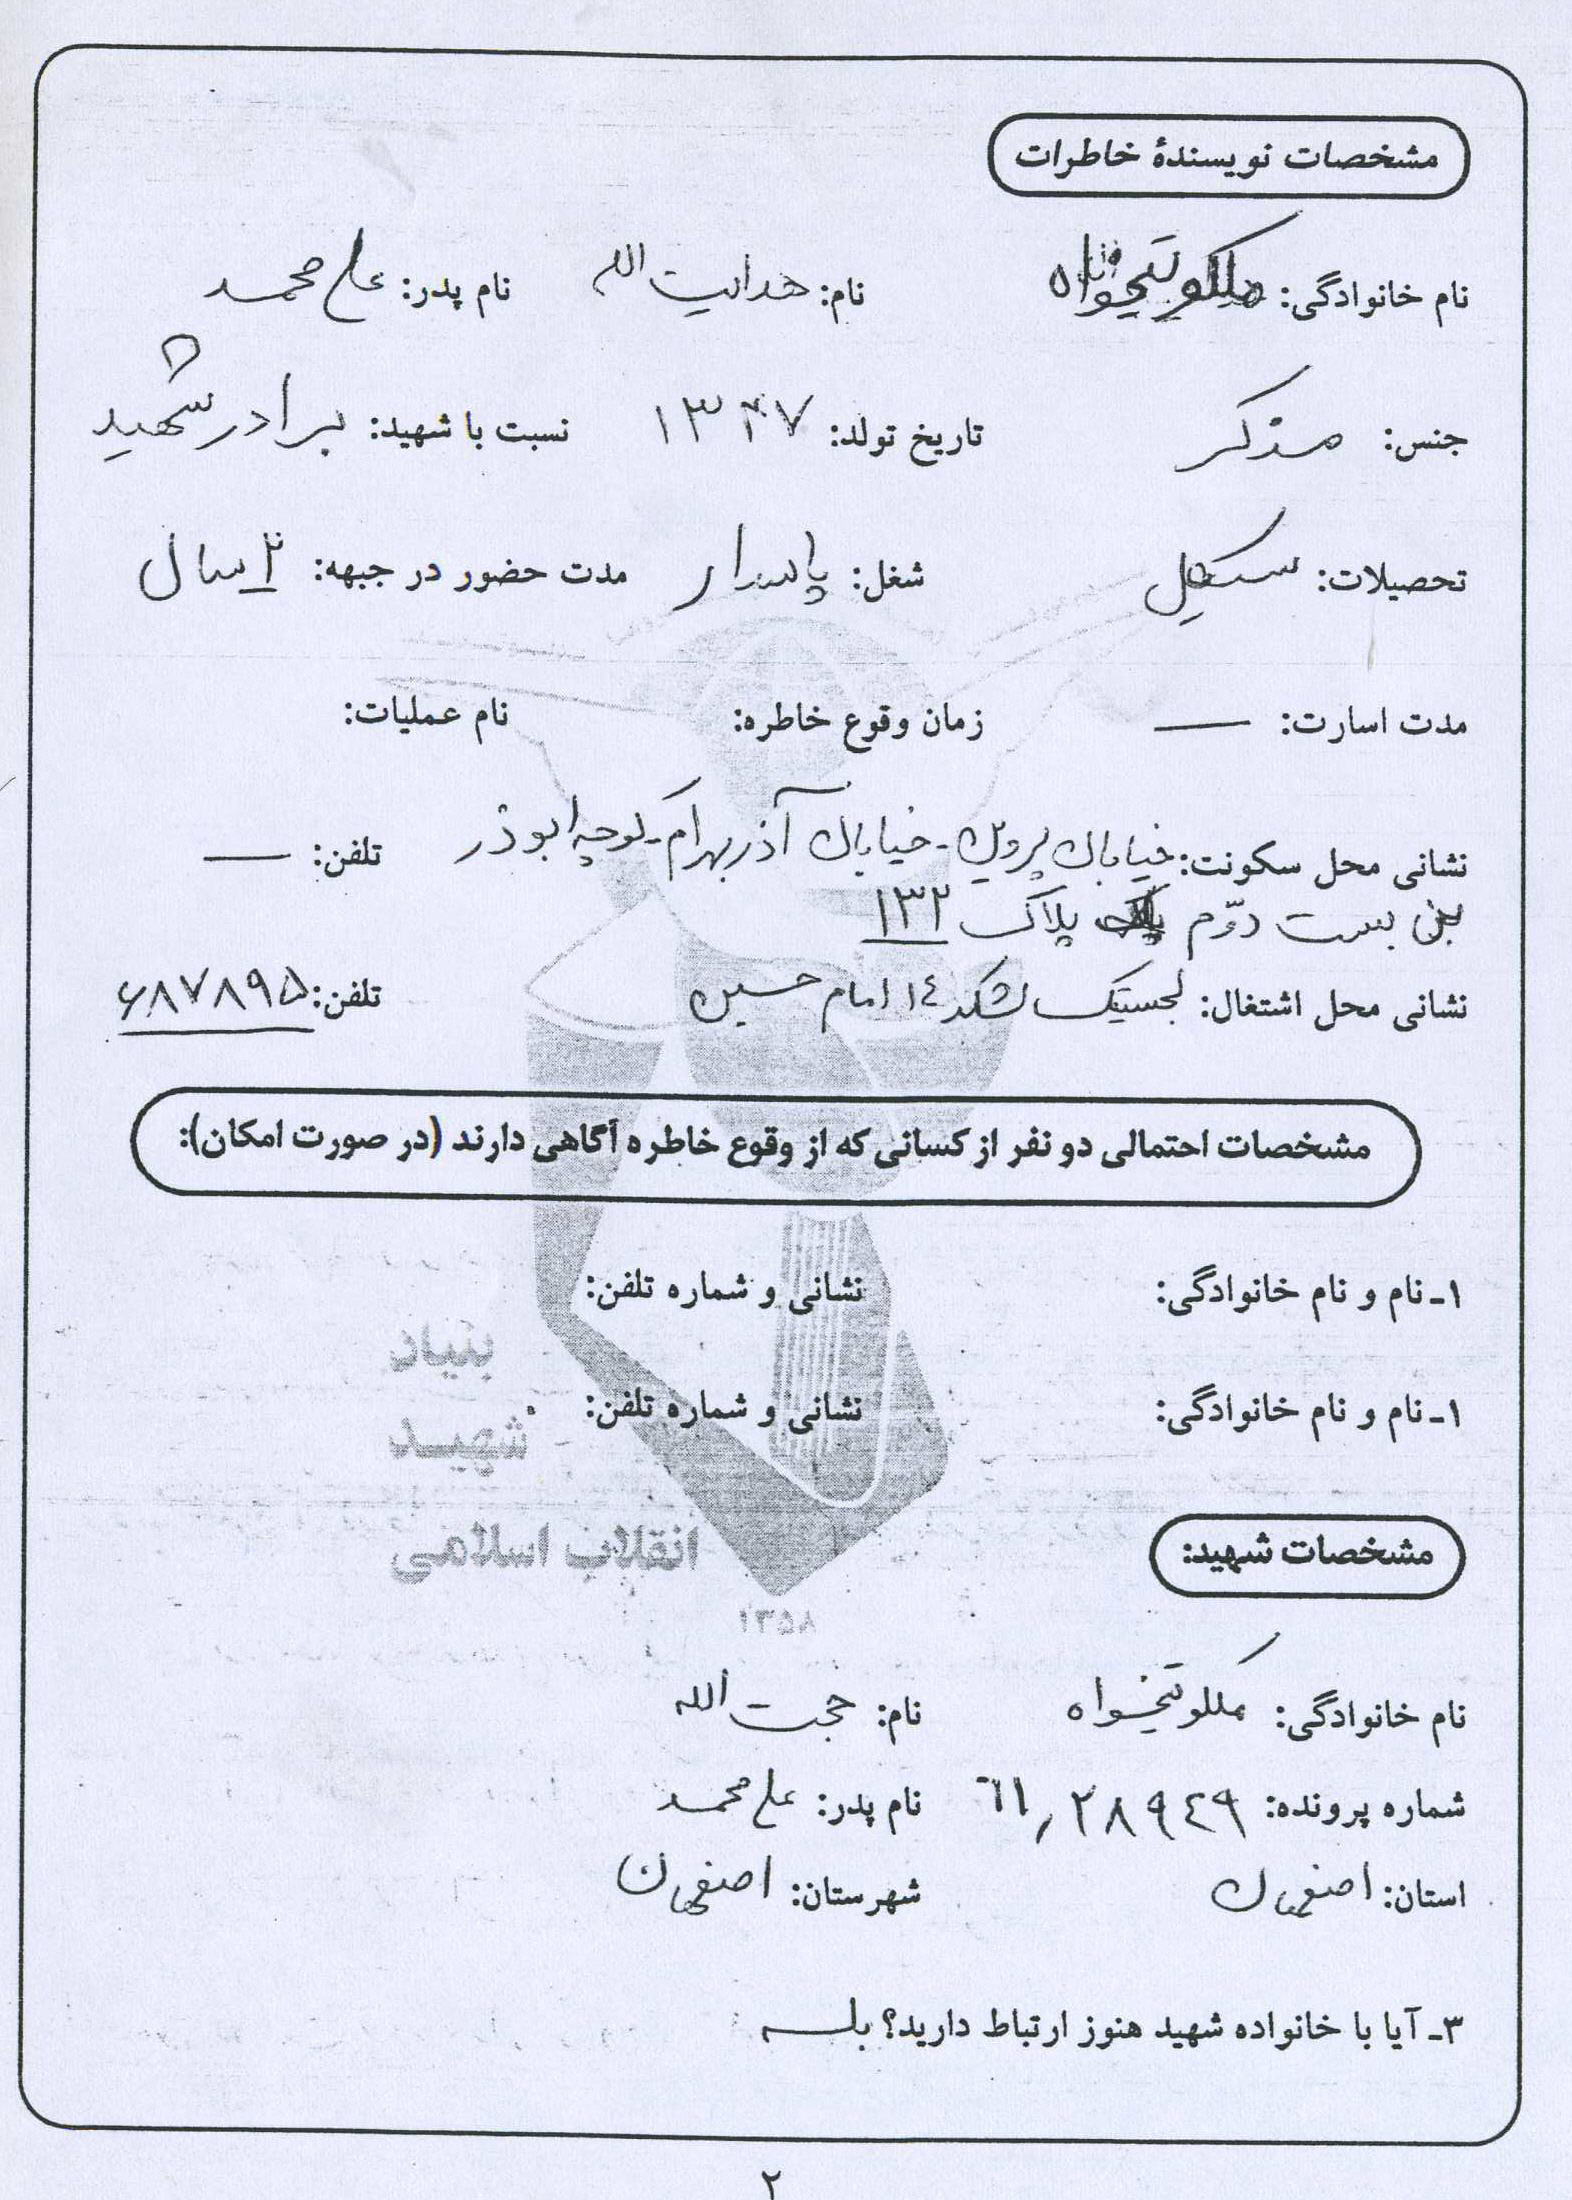 مشخصات نویسندهٔ خاطرات
نام خانوادگی: ملکوتیخواه نام: هدایت الله نام پدر: علی محمد
جنس: مذکر تاریخ تولد: ۱۳۴۷ نسبت با شهید: برادر شهید
تحصیلات: سیکل شغل: پاسدار مدت حضور در جبهه: ۲ سال
مدت اسارت: — زمان وقوع خاطره: نام عملیات:
نشانی محل سکونت: خیابان پروین - خیابان آذر بهرام - کوچه ابوذر تلفن: —
بن بست دوّم پلاک ۱۳۲
نشانی محل اشتغال: لجستیک لشکر ۱۴ امام حسین تلفن: ۶۸۷۸۹۵
مشخصات احتمالی دو نفر از کسانی که از وقوع خاطره آگاهی دارند (در صورت امکان):
۱ـ نام و نام خانوادگی: نشانی و شماره تلفن:
۱ـ نام و نام خانوادگی: نشانی و شماره تلفن:
بنیاد
شهید
انقلاب اسلامی
۱۳۵۸
مشخصات شهید:
نام خانوادگی: ملکوتیخواه نام: حجت الله
شماره پرونده: ۶۱٫۲۸۹۴۹ نام پدر: علی محمد
استان: اصفهان شهرستان: اصفهان
۳ـ آیا با خانواده شهید هنوز ارتباط دارید؟ بله
۲